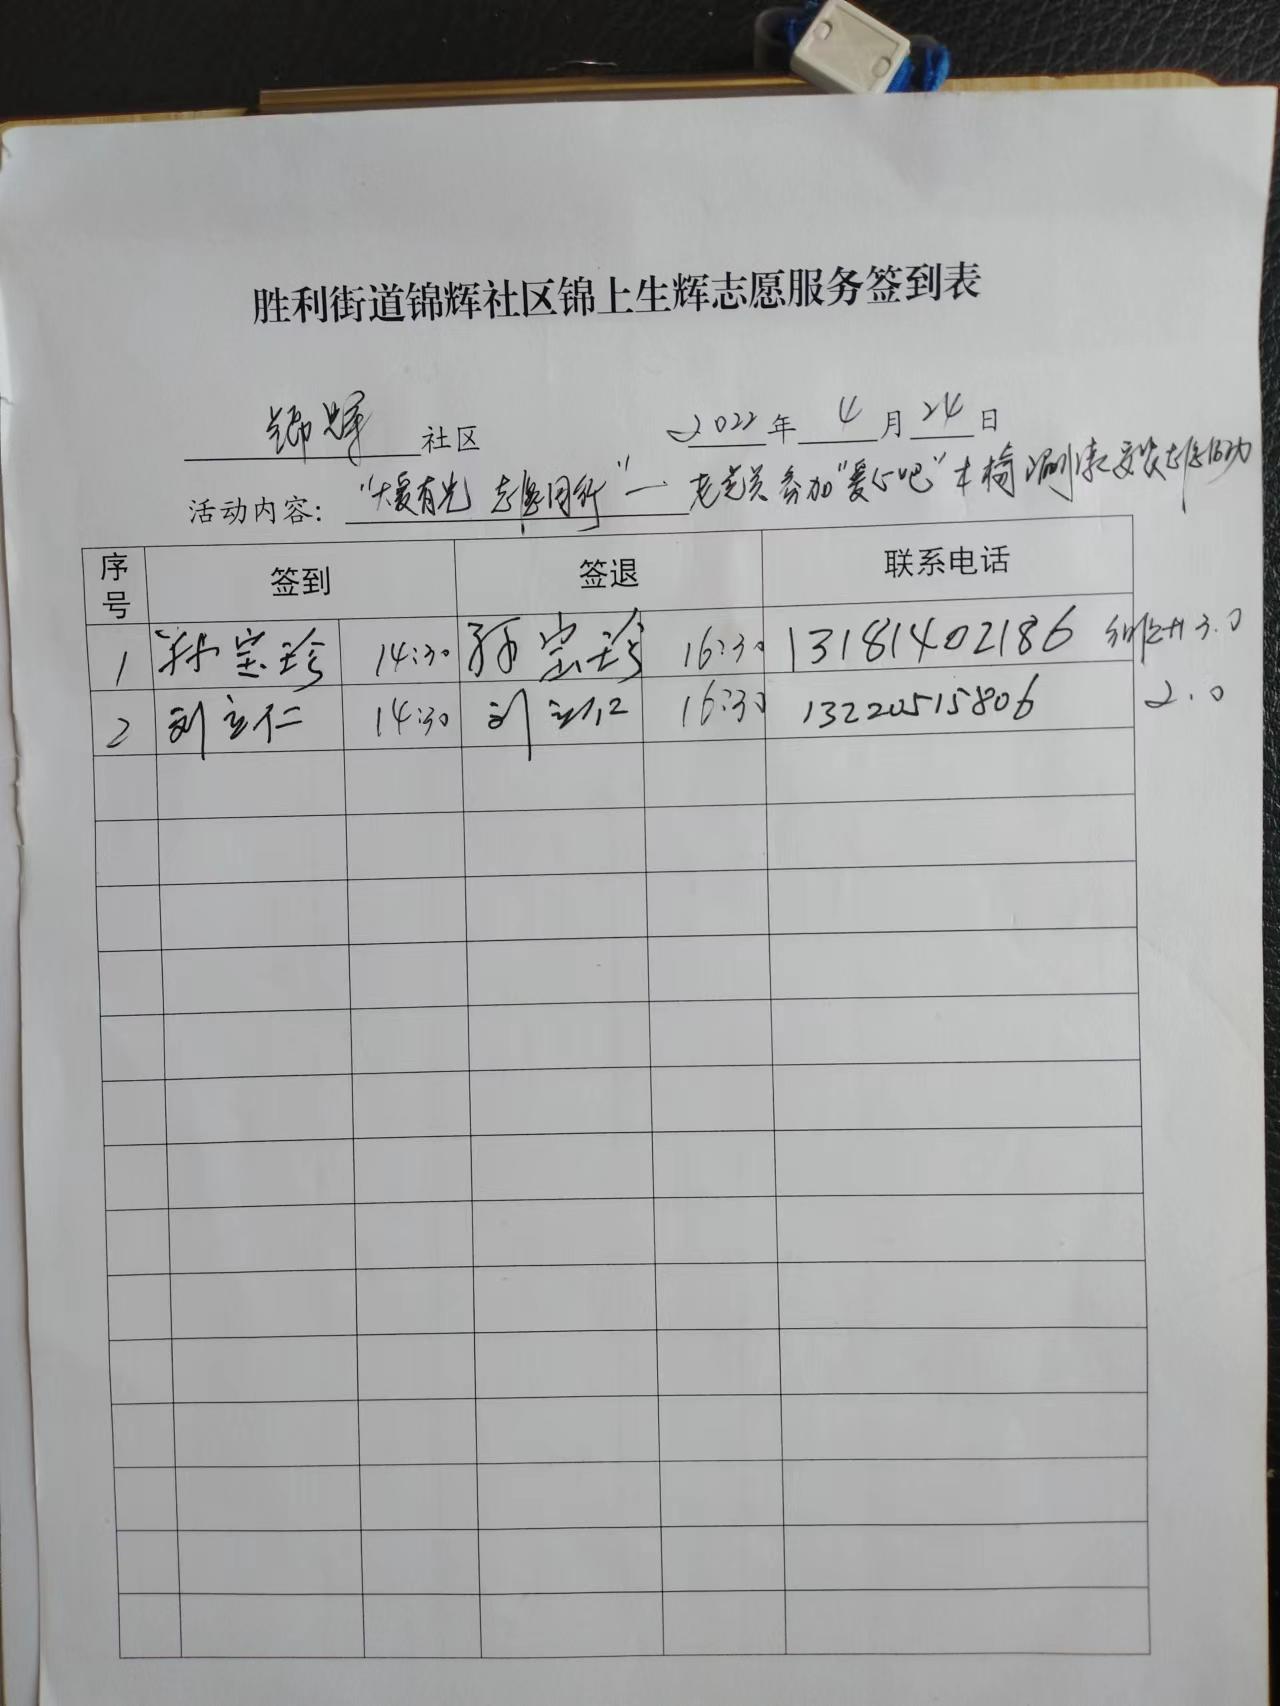 胜利街道锦辉社区锦上生辉志愿服务签到表
锦辉 社区 2022年 4 月 24 日
活动内容: "大爱有光 志愿同行" — 老党员参加"爱心吧"木椅刷漆 志愿活动
序号 签到 签退 联系电话
1 孙宝珍 14:30 孙宝珍 16:30 13181402186 3.0
2 刘立仁 14:30 刘立仁 16:30 13220515806 2.0